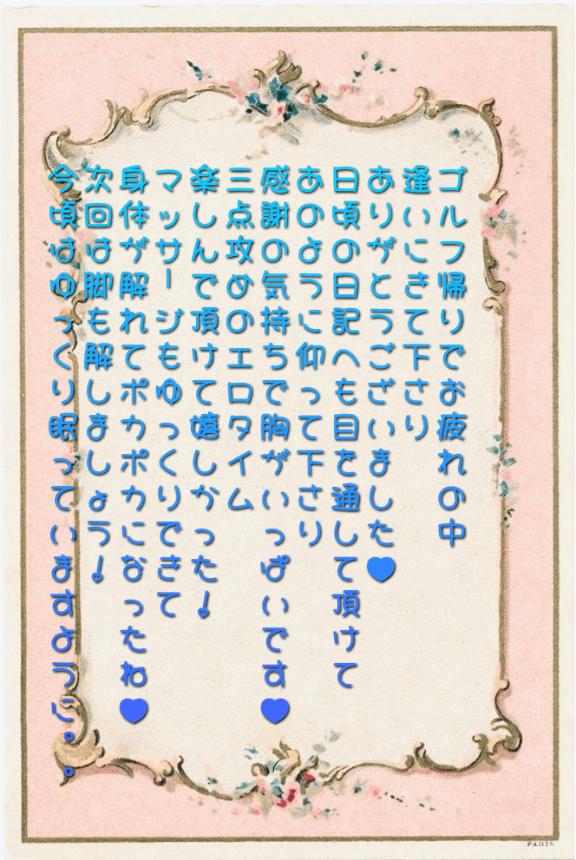 ゴルフ帰りでお疲れの中
逢いにきて下さり
ありがとうございました♥
日頃の日記へも目を通して頂けて
あのように仰って下さり
感謝の気持ちで胸がいっぱいです♥
三点攻めのエロタイム
楽しんで頂けて嬉しかった！
マッサージもゆっくりできて
身体が解れてポカポカになったね♥
次回は脚も解しましょう！
今頃はゆっくり眠っていますように。。
PARIS